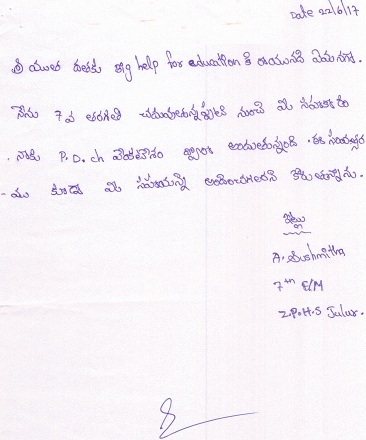 Date 22/6/17
శ్రీ యుత దాతకు Big help for education కి రాయునది ఏమనగా.
నేను 7వ తరగతి చదువుతున్నప్పటి నుంచి మీ సహకారం
నాకు P.D.ch ద్వారా అందుతున్నది. ఈ సంవత్సర
-ము కూడా మీ సహాయాన్ని అందించగలరని కోరుతున్నాను.
ఇట్లు
A. Sushmitha
7th E/M
Z.P.H.S Julur.